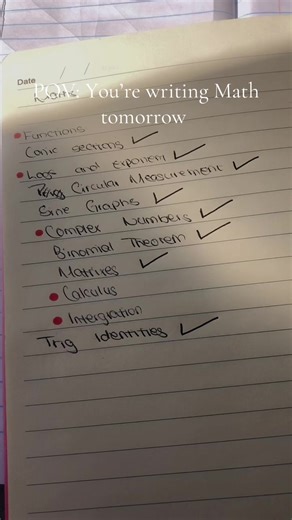 Date / /
POV: You're writing Math
tomorrow
Functions
Conic sections ✓
Logs and exponent ✓
Circular Measurement ✓
Sine Graphs ✓
Complex Numbers ✓
Binomial Theorem ✓
Matrixes ✓
Calculus
Intergration
Trig Identities ✓